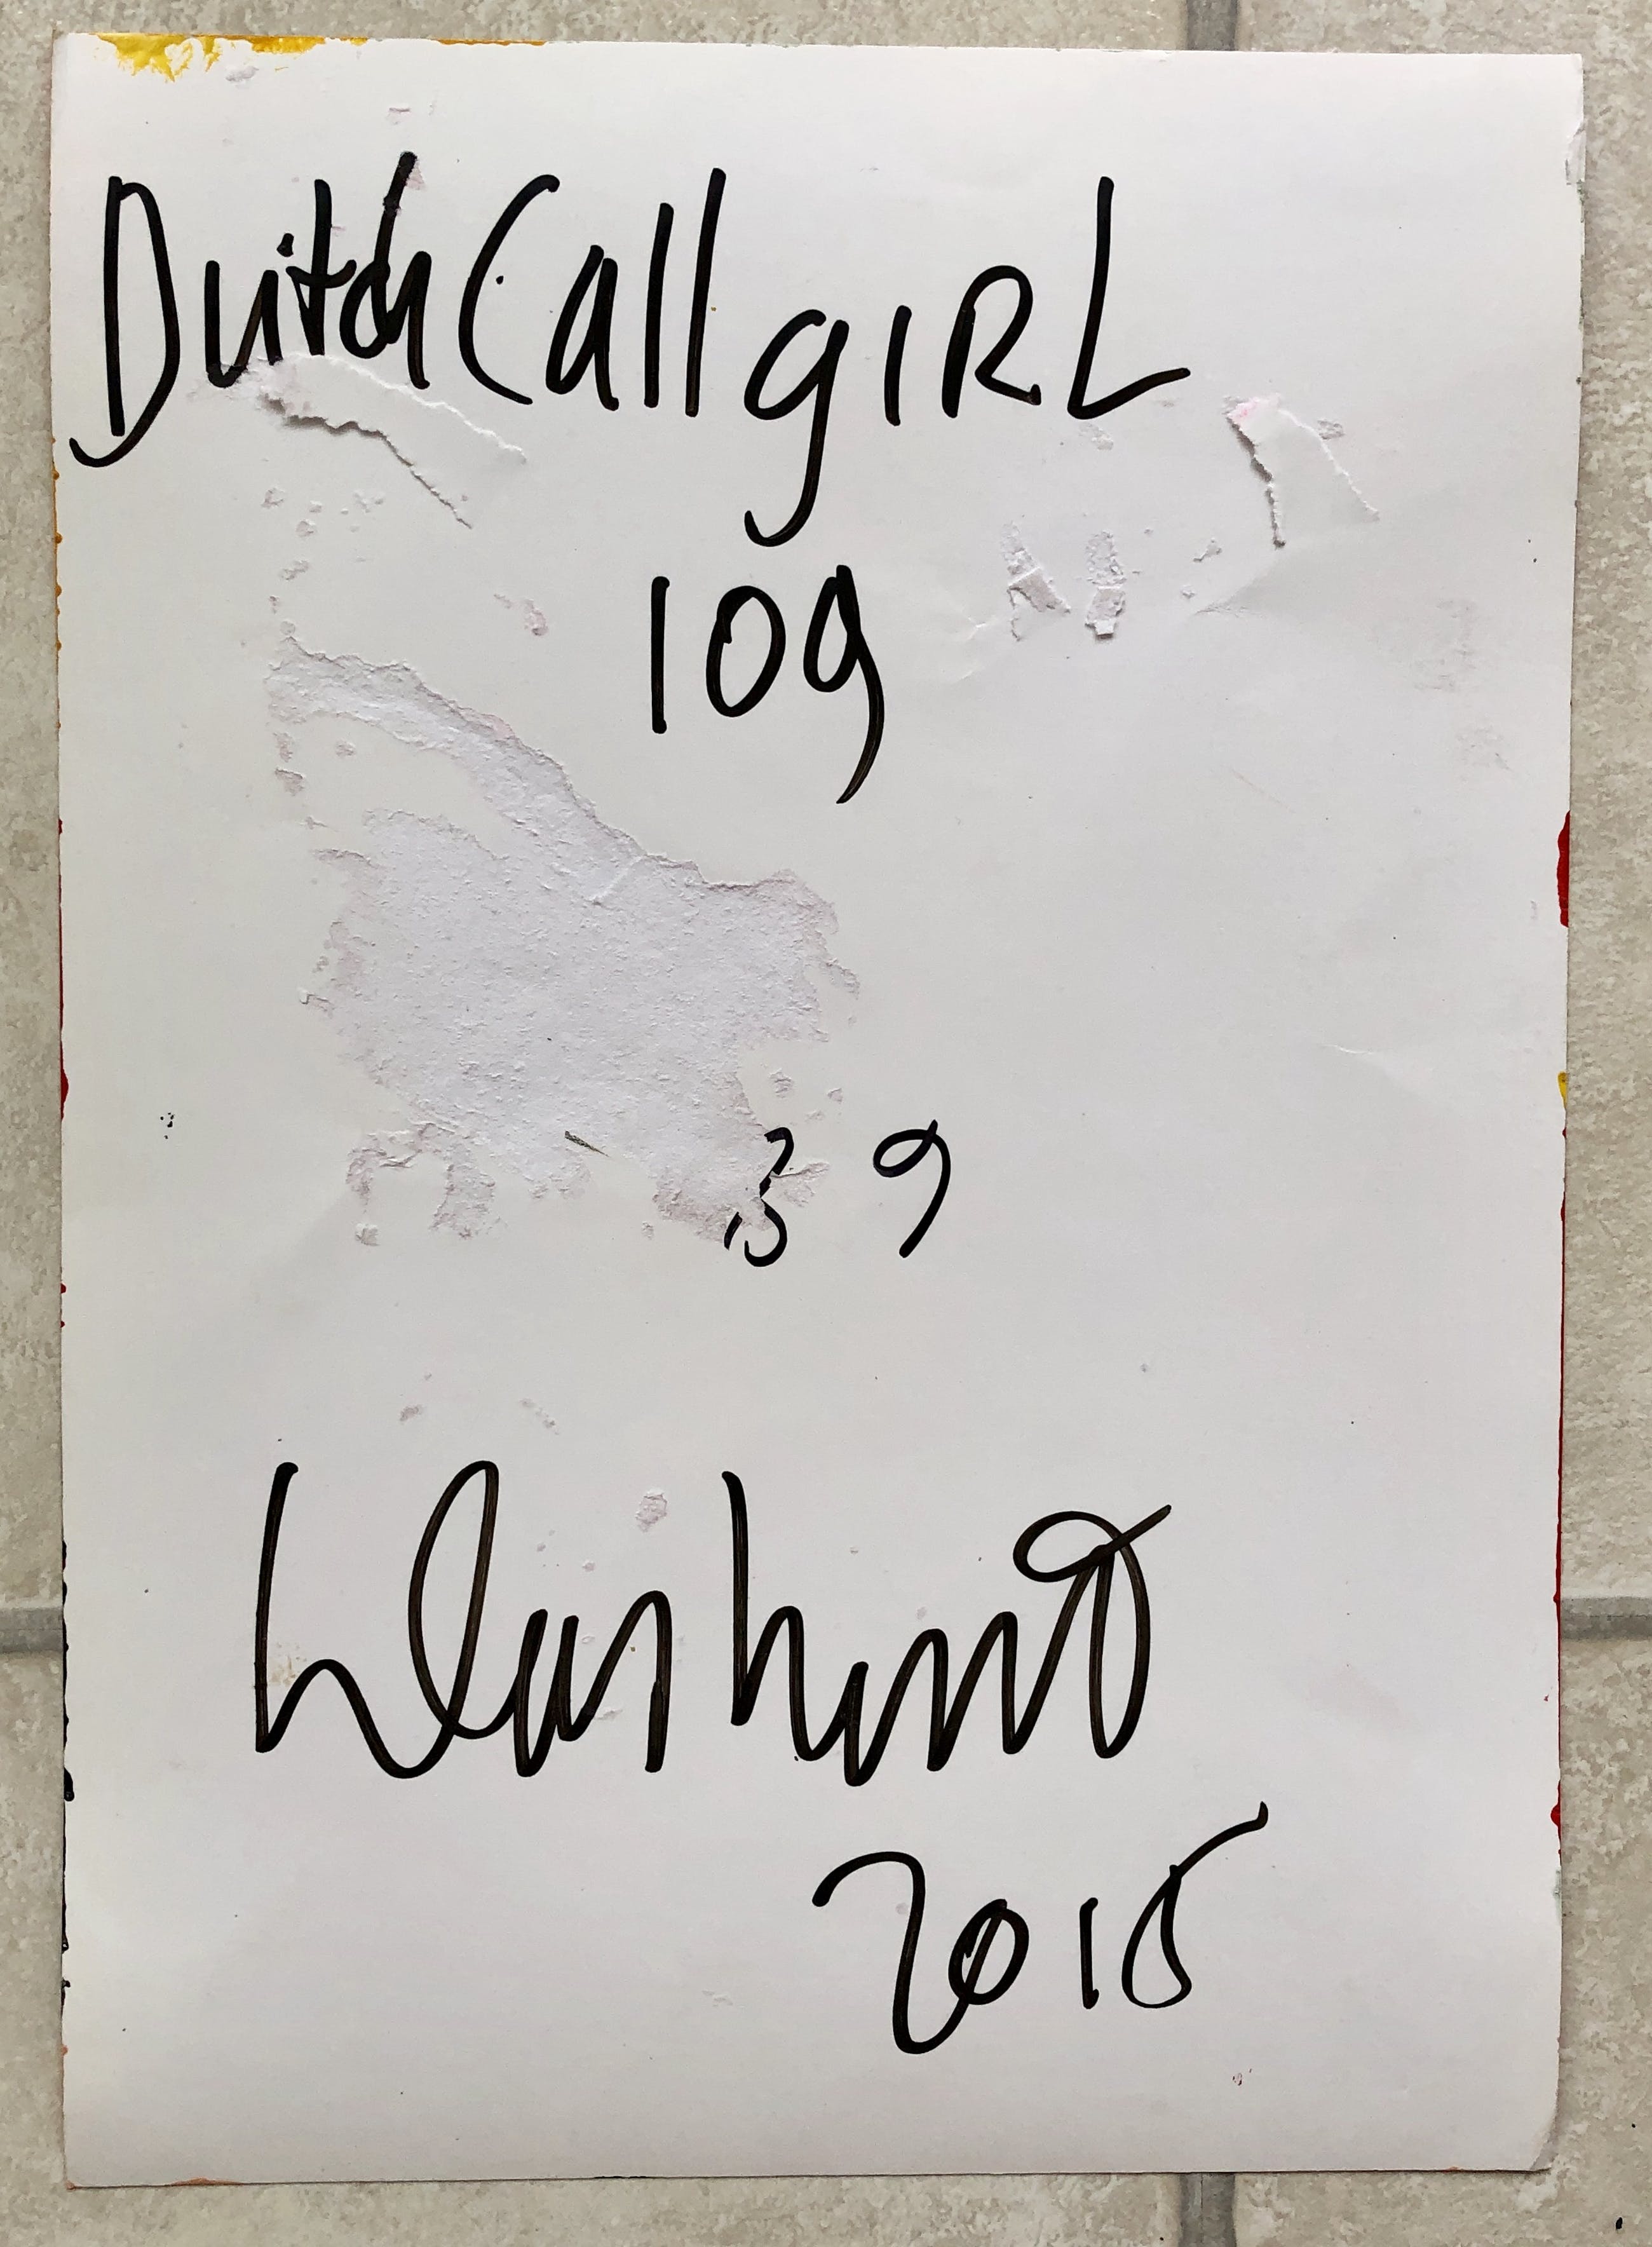 Dutch Call giRL
109
39
2015